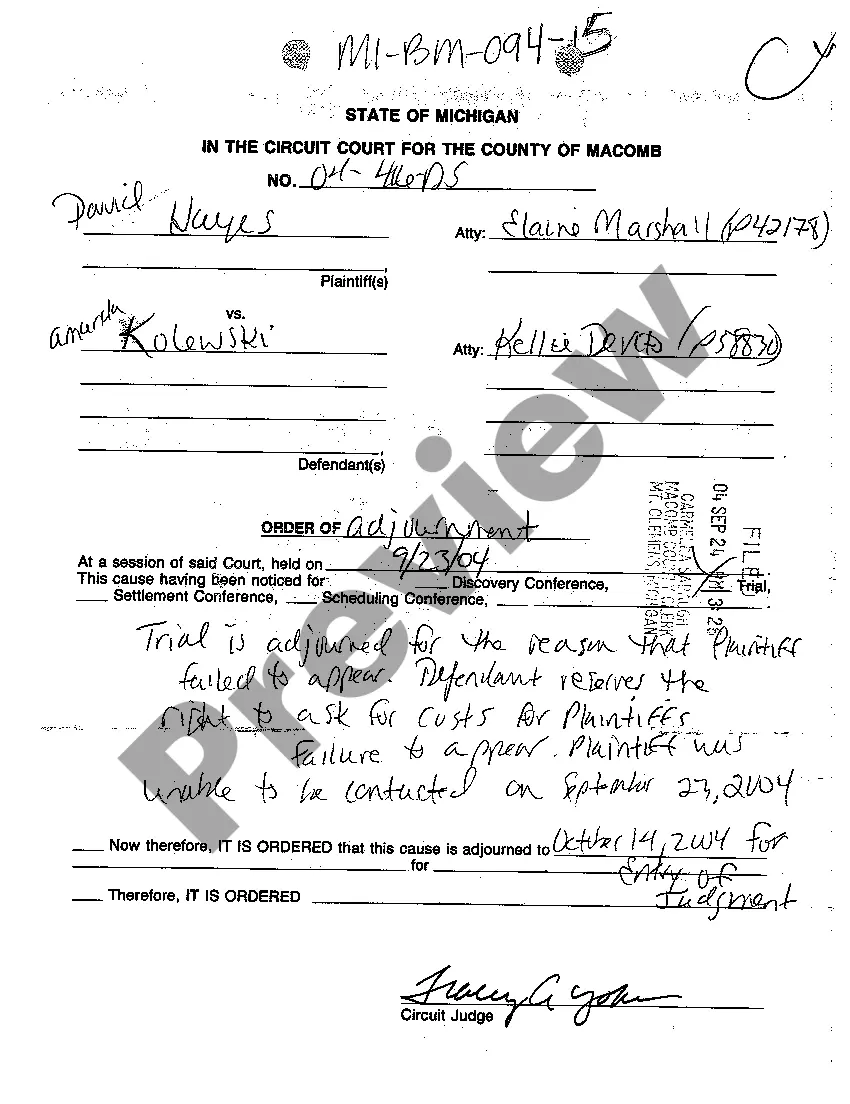 MI-BM-094-15
STATE OF MICHIGAN
IN THE CIRCUIT COURT FOR THE COUNTY OF MACOMB
NO. 04-
David
Hayes Atty: Elaine Marshall (P42178)
Plaintiff(s)
vs.
Amanda
Kolewski Atty: Kellie (P58830)
Defendant(s)
04 SEP 24 PM 3:26
FILED
CARMELLA SABAUGH
MACOMB COUNTY CLERK
MT. CLEMENS, MICHIGAN
ORDER OF adjournment
At a session of said Court, held on 9/23/04
This cause having been noticed for: Discovery Conference, Trial,
Settlement Conference, Scheduling Conference,
Trial is adjourned for the reason that Plaintiff
failed to appear. Defendant reserves the
right to ask for costs for Plaintiffs
failure to appear. Plaintiff was
unable to be contacted on September 23, 2004
Now therefore, IT IS ORDERED that this cause is adjourned to October 14, 2004 for
for Entry of
Therefore, IT IS ORDERED Judgment
Circuit Judge
Preview